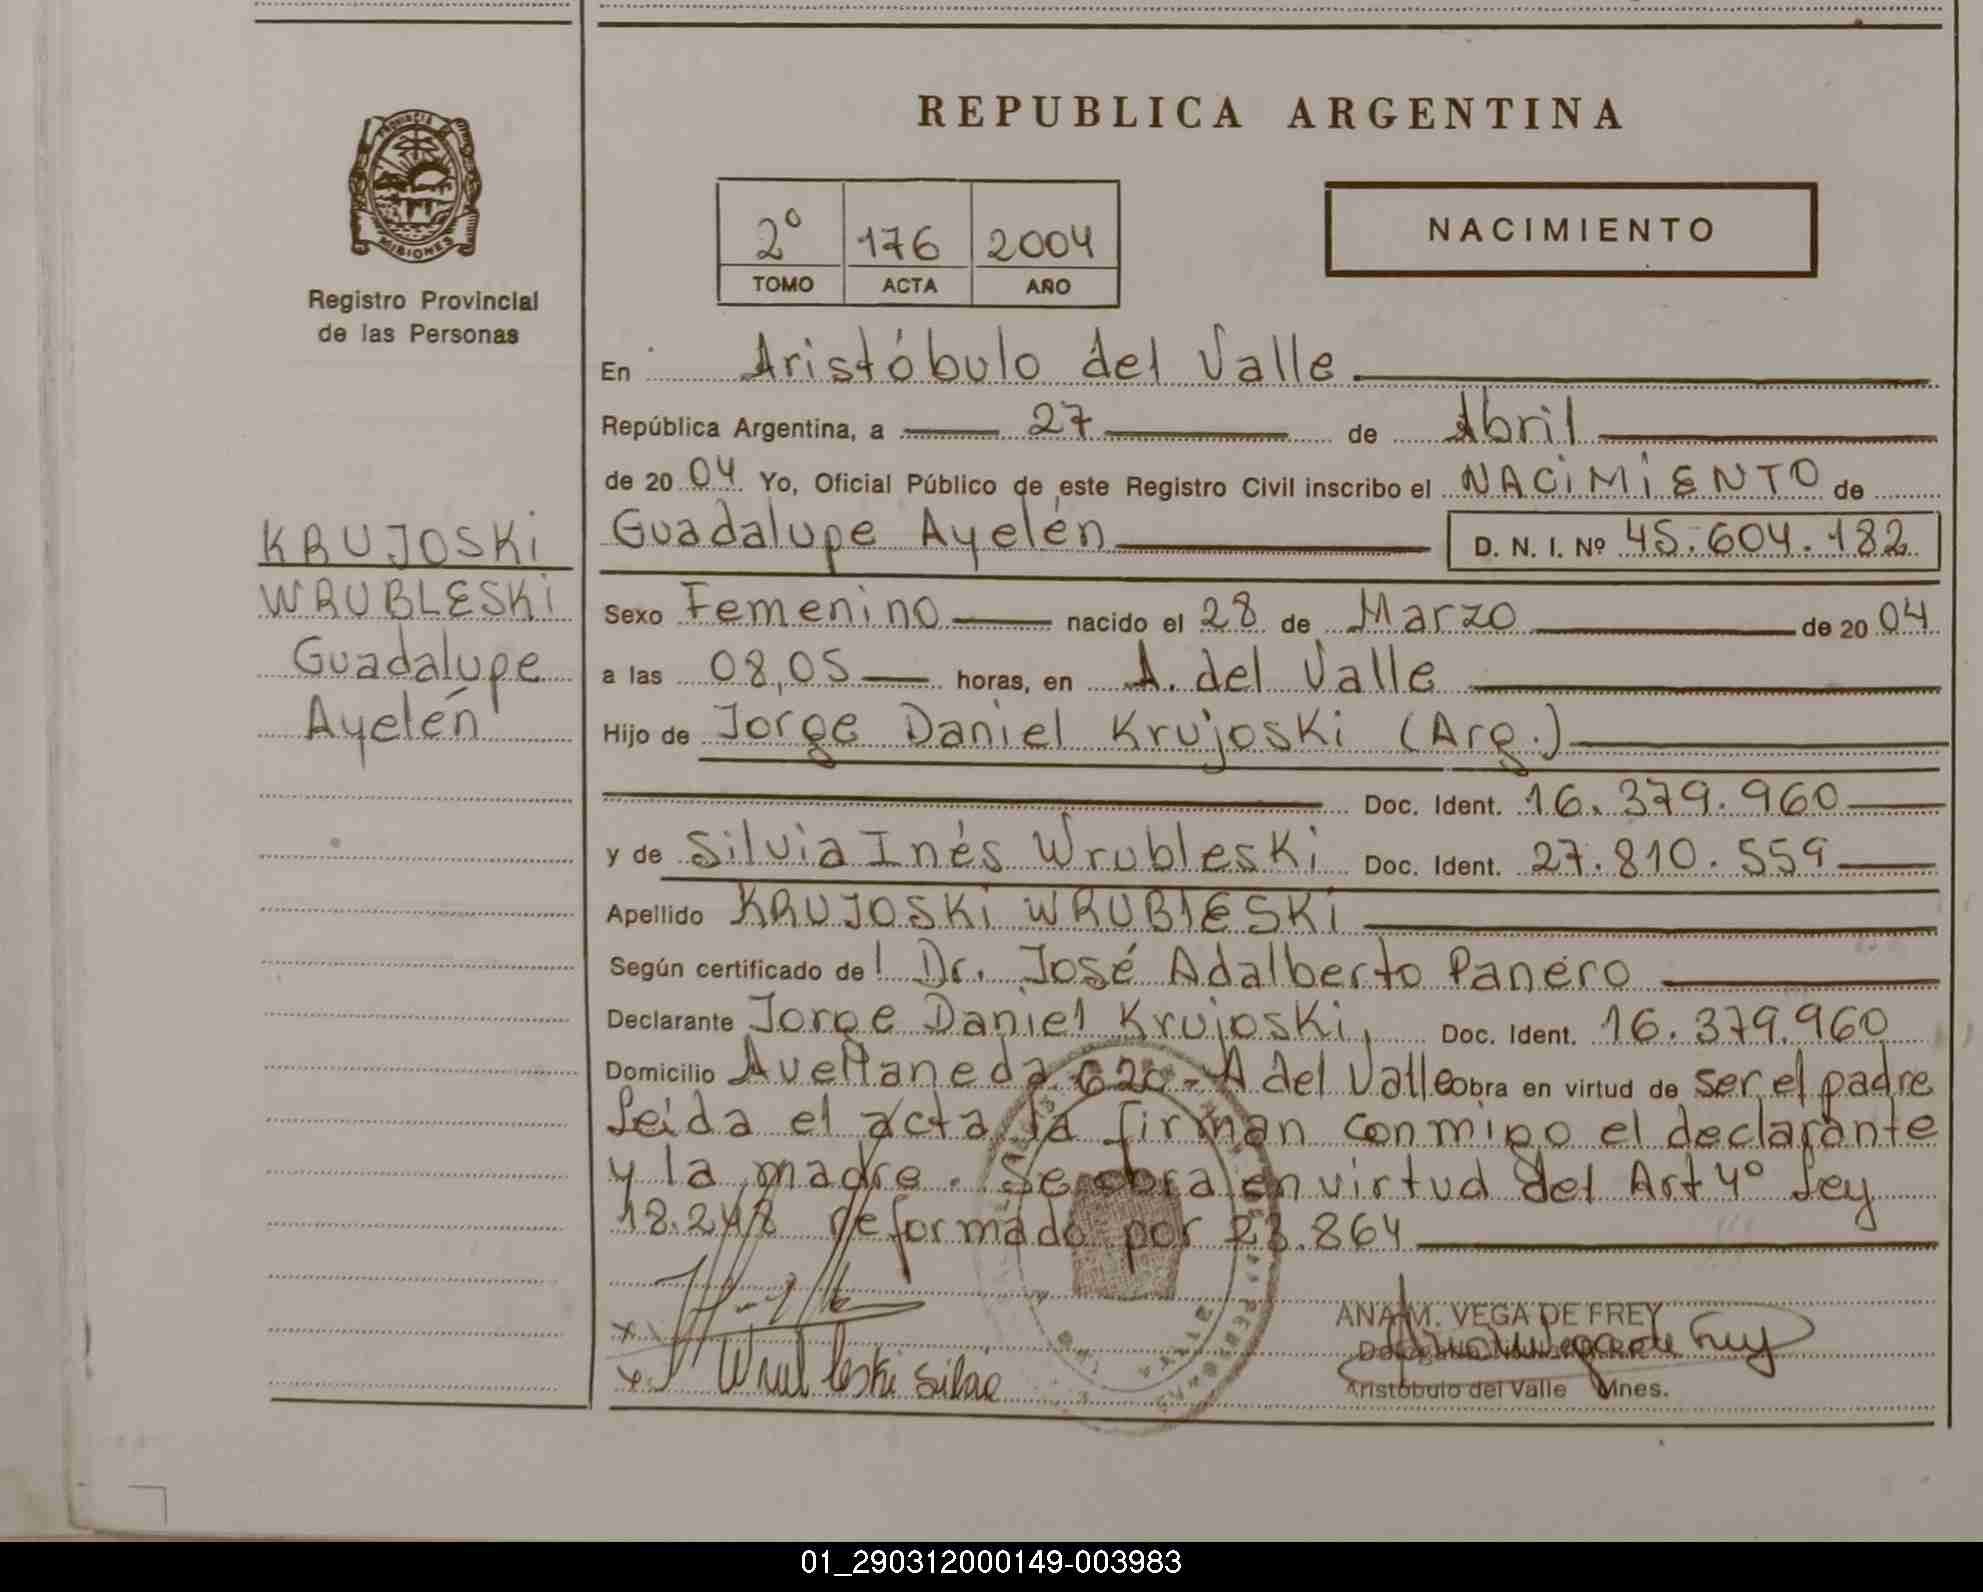 REPUBLICA ARGENTINA
PROVINCIA DE
MISIONES
Registro Provincial
de las Personas
2º 176 2004
TOMO ACTA AÑO
NACIMIENTO
En Aristóbulo del Valle
República Argentina, a 27 de Abril
de 20 04 Yo, Oficial Público de este Registro Civil inscribo el NACIMIENTO de
Guadalupe Ayelén D. N. I. Nº 45.604.182
KRUJOSKI
WRUBLESKI
Guadalupe
Ayelén
Sexo Femenino nacido el 28 de Marzo de 20 04
a las 08,05 horas, en A. del Valle
Hijo de Jorge Daniel Krujoski (Arg.)
Doc. Ident. 16.379.960
y de Silvia Inés Wrubleski Doc. Ident. 27.810.559
Apellido KRUJOSKI WRUBLESKI
Según certificado de Dr. José Adalberto Panero
Declarante Jorge Daniel Krujoski, Doc. Ident. 16.379.960
Domicilio Avellaneda - A del Valle obra en virtud de ser el padre
Leída el acta la firman conmigo el declarante
y la madre. Se obra en virtud del Art 4º Ley
18.248 reformado por 23.864
ANA M. VEGA DE FREY
Aristóbulo del Valle Mnes.
01_290312000149-003983